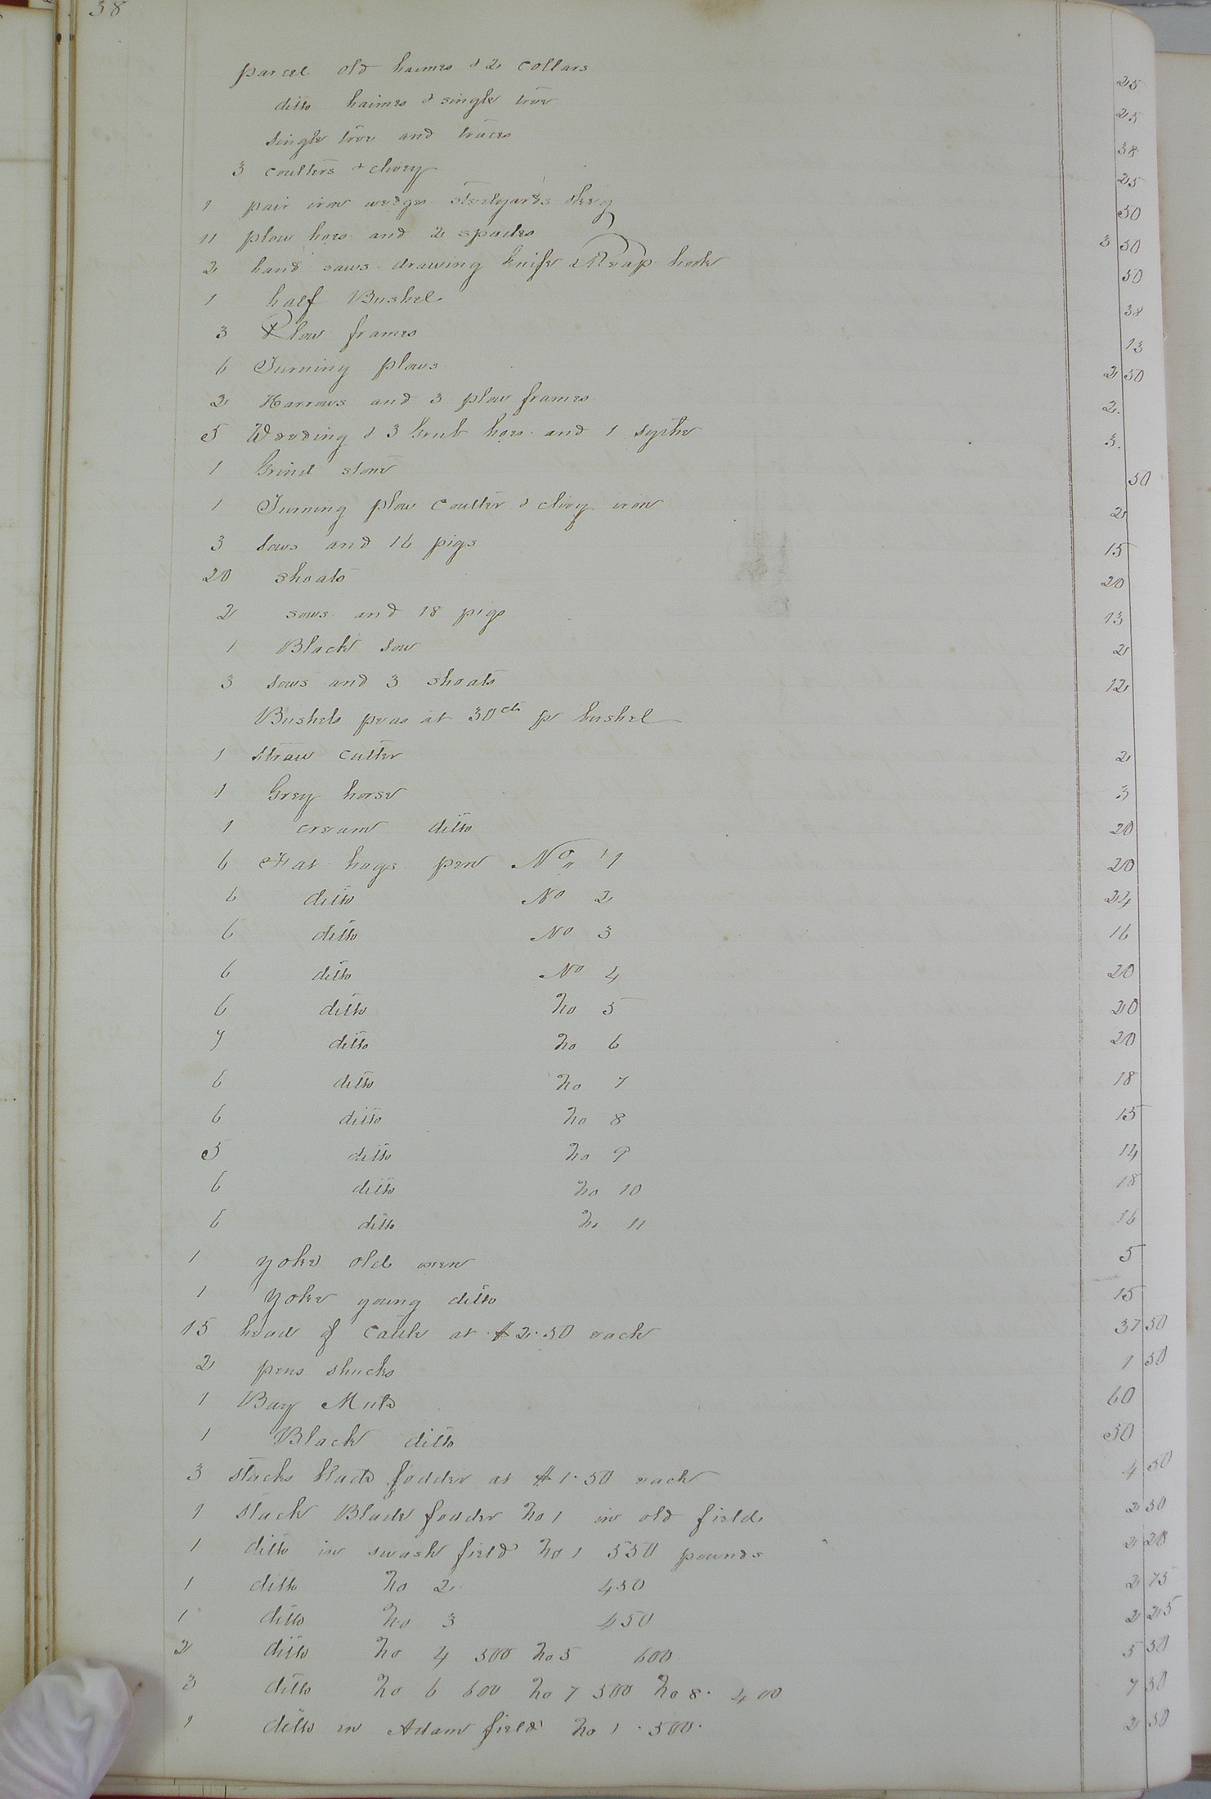 38
parcel old haimes & 2 collars 25
ditto haimes & single tree 25
single tree and traces 38
3 coulters & clivey 25
1 pair iron wedges steelyards &key 50
11 plow hoes and 2 spades 3 50
2 hand saws drawing knife & Reap hook 50
1 half Bushel 38
3 Plow frames 13
6 Turning plows 2 50
2 Harrows and 3 plow frames 2.
5 Weeding & 3 Grub hoes and 1 sythe 3.
1 Grind stone 50
1 Turning plow coulter & clivy iron 2
3 Sows and 16 pigs 15
20 shoats 20
2 sows and 18 pigs 13
1 Black Sow 2
3 Sows and 3 shoats 12
Bushels peas at 30cts pr bushel
1 Straw cutter 2
1 Grey horse 3
1 cream ditto 20
6 Fat hogs pen No 1 20
6 ditto No 2 24
6 ditto No 3 16
6 ditto No 4 20
6 ditto no 5 20
7 ditto no 6 20
6 ditto no 7 18
6 ditto no 8 15
5 ditto no 9 14
6 ditto no 10 18
6 ditto no 11 16
1 yoke old oxen 5
1 yoke young ditto 15
15 head of Cattle at $2.50 each 37 50
2 pens shucks 1 50
1 Bay Mule 60
1 Black ditto 50
3 stacks Blade fodder at $1.50 each 4 50
1 stack Blade fodder no 1 in old field 2 50
1 ditto in swash field no 1 550 pounds 2 20
1 ditto no 2 450 2 75
1 ditto no 3 450 2 25
2 ditto no 4 500 no 5 600 5 50
3 ditto no 6 600 no 7 500 no 8. 400 7 50
1 ditto in Adam field no 1. 500. 2 50